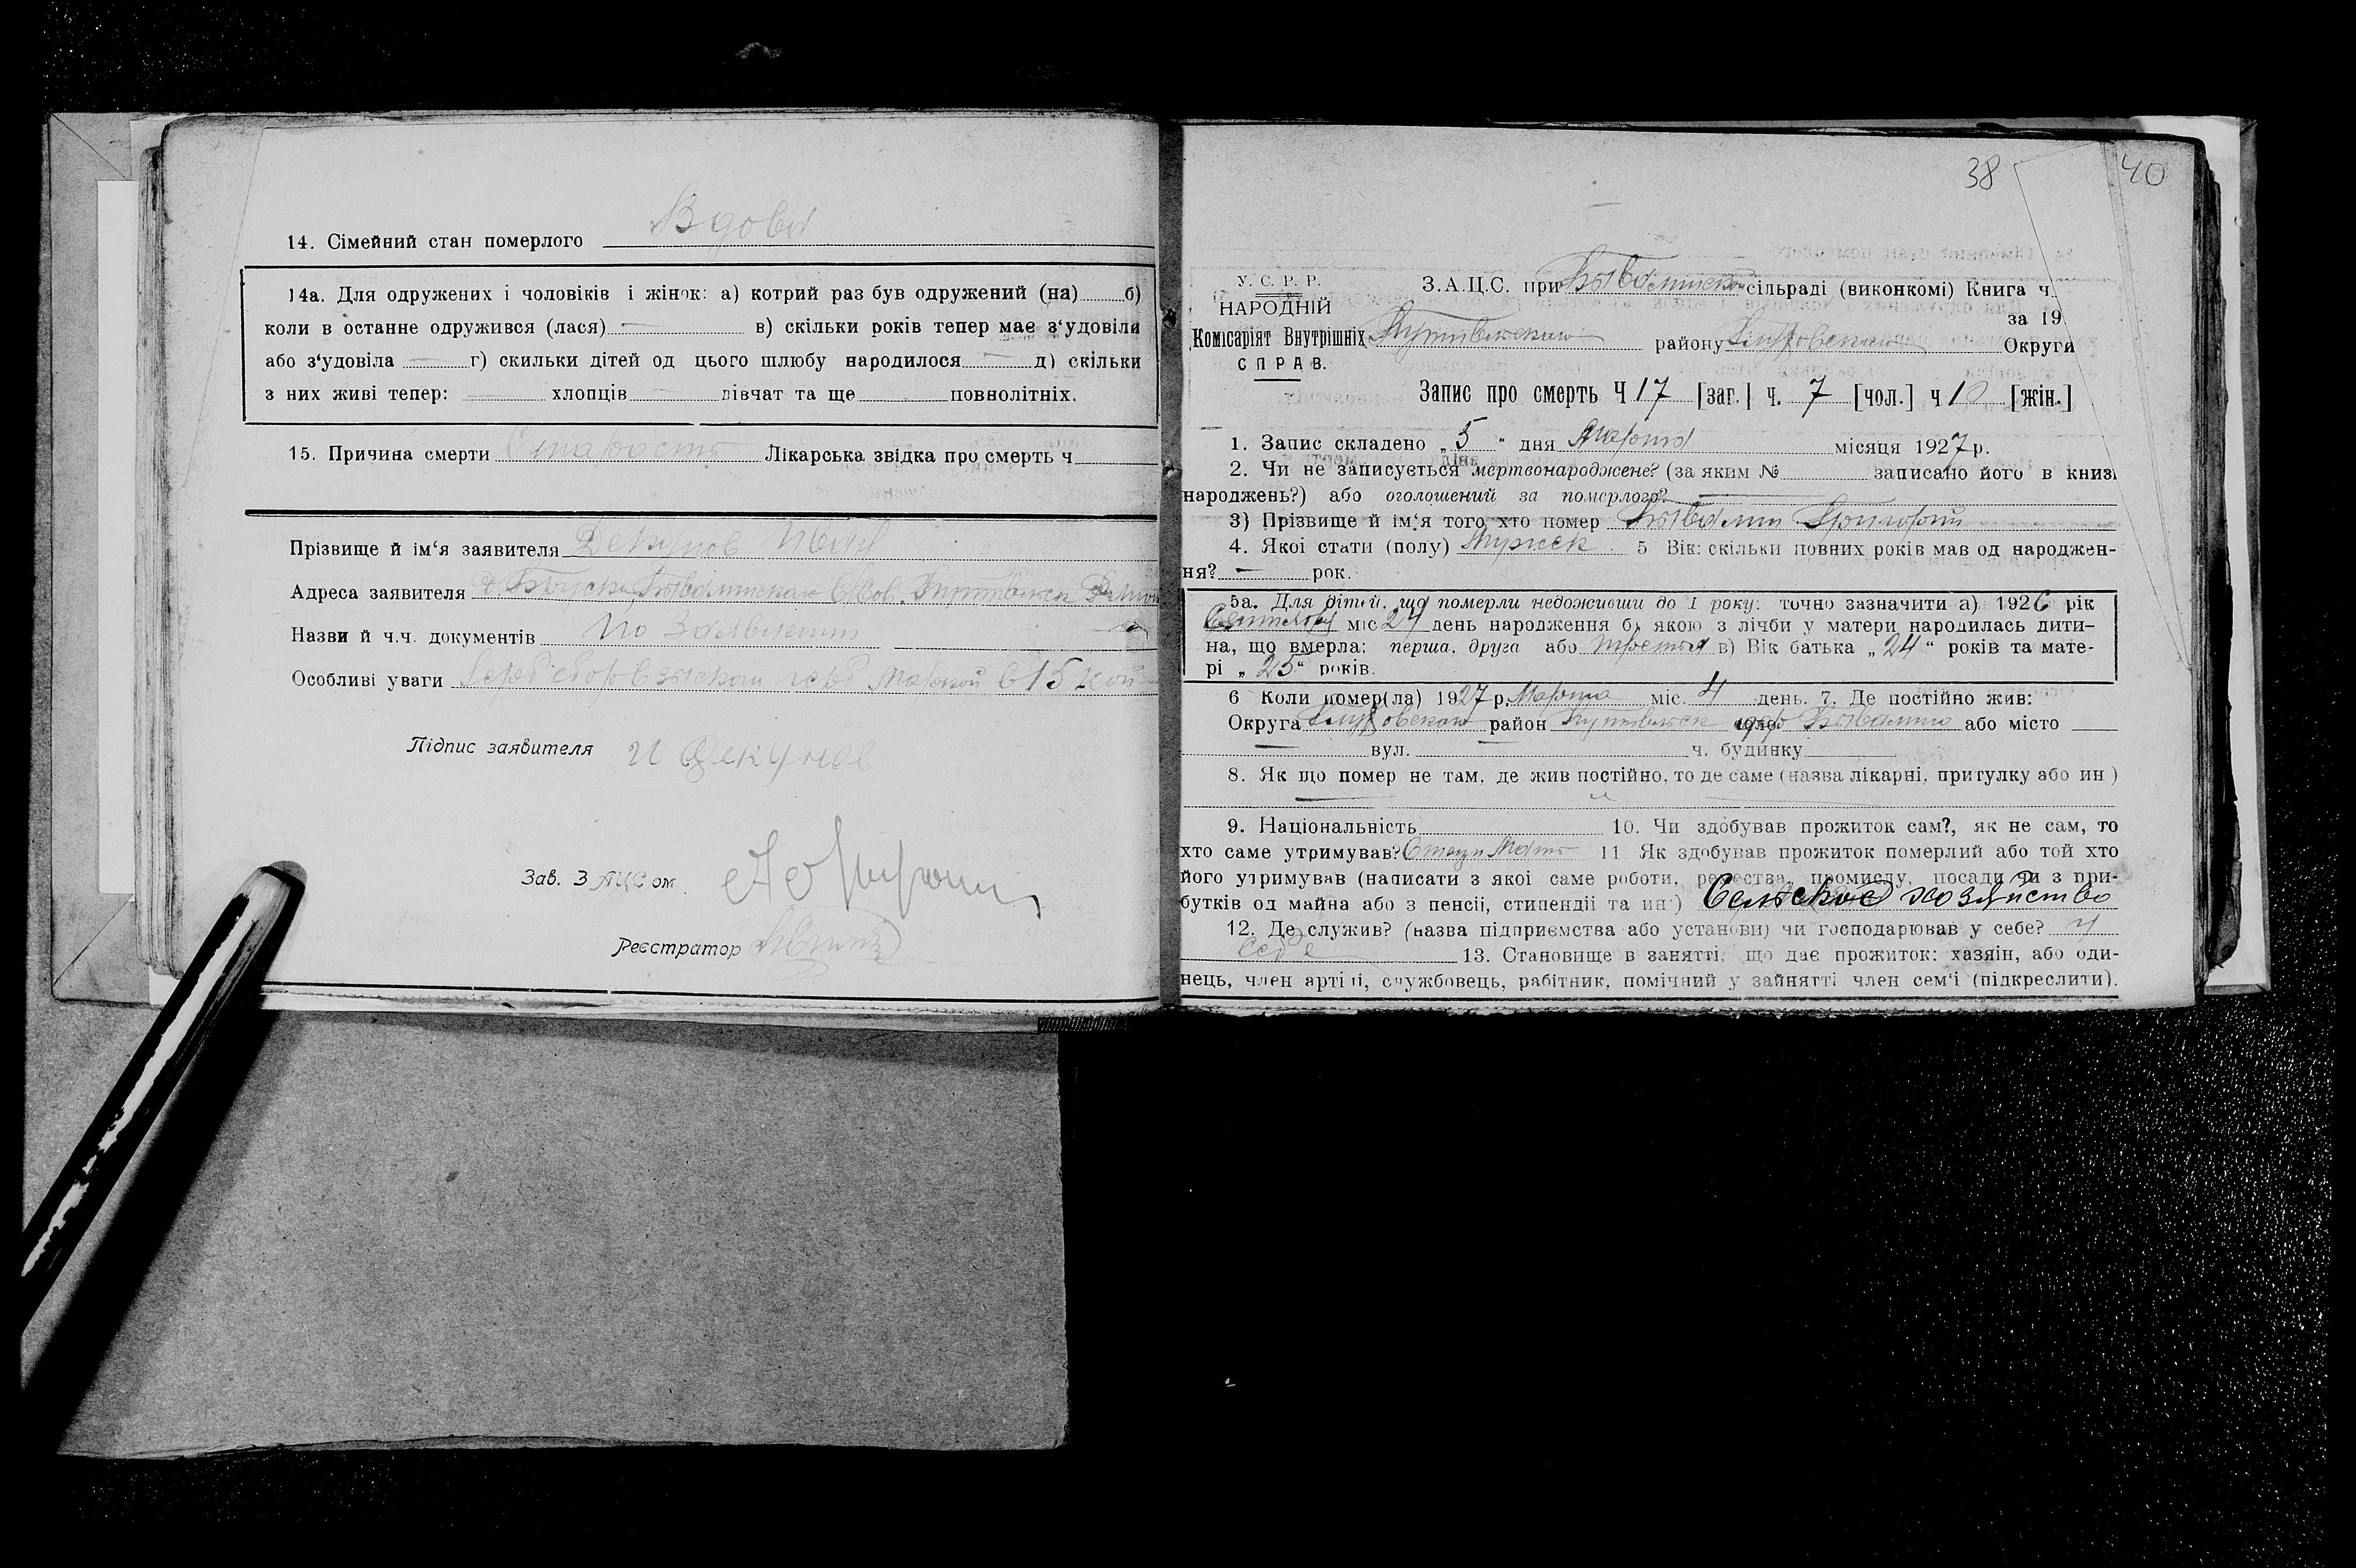 Вдова
14. Сімейний стан померлого
14а. Для одружених і чоловіків і жінок: а) котрий раз був одружений (на) б)
коли в останне одружився (лася) — в) скільки років тепер має з'удовіли
або з'удовіла — г) скильки дітей од цього шлюбу народилося — д) скільки
з них живі тепер: — хлопців — дівчат та ще повнолітніх.
15. Причина смерти Старость Лікарська звідка про смерть ч
Прізвище й ім'я заявителя Декунов Иван
Адреса заявителя
Назви й ч.ч. документів По Заявлению
Особливі уваги маркой в 15 коп
Підпис заявителя И Декунов
Зав. ЗАЦСом
Реєстратор
38 40
У. С. Р. Р.
НАРОДНІЙ
Комісаріят Внутрішніх
СПРАВ.
З.А.Ц.С. при сільраді (виконкомі) Книга ч.
за 19
Путивльского району Глуховского Округи
Запис про смерть Ч 17 [заг.] ч. 7 [чол.] ч 10 [жін.]
1. Запис складено „5" дня Марта місяця 1927 р.
2. Чи не записується мертвонароджене? (за яким № записано його в книзі
народжень?) або оголошений за померлого? —
3) Прізвище й ім'я того, хто помер Григорий
4. Якоі стати (полу) Мужск 5 Вік: скільки повних років мав од народжен-
ня? — рок.
5а. Для дітей, що померли недоживши до 1 року: точно зазначити а) 1926 рік
Сентября міс 24 день народження б) якою з лічби у матери народилась дити-
на, що вмерла: перша, друга або третья в) Вік батька „24" років та мате-
рі „25" років.
6 Коли помер(ла) 1927 р. Марта міс. 4 день. 7. Де постійно жив:
Округа Глуховского район Путивльск або місто —
— вул. — ч. будинку
8. Як що помер не там, де жив постійно, то де саме (назва лікарні, притулку або ин)
9. Національність 10. Чи здобував прожиток сам?, як не сам, то
хто саме утримував? Отец и Мать 11 Як здобував прожиток померлий або той хто
його утримував (написати з якоі саме роботи, ремества, промислу, посади чи з при-
бутків од майна або з пенсіі, стипендіі та ин.) Сельское хозяйство
12. Де служив? (назва підприємства або установи) чи господарював у себе? у
себе 13. Становище в занятті, що дає прожиток: хазяін, або оди-
нець, член артілі, службовець, рабітник, помічний у зайнятті член сем'і (підкреслити).